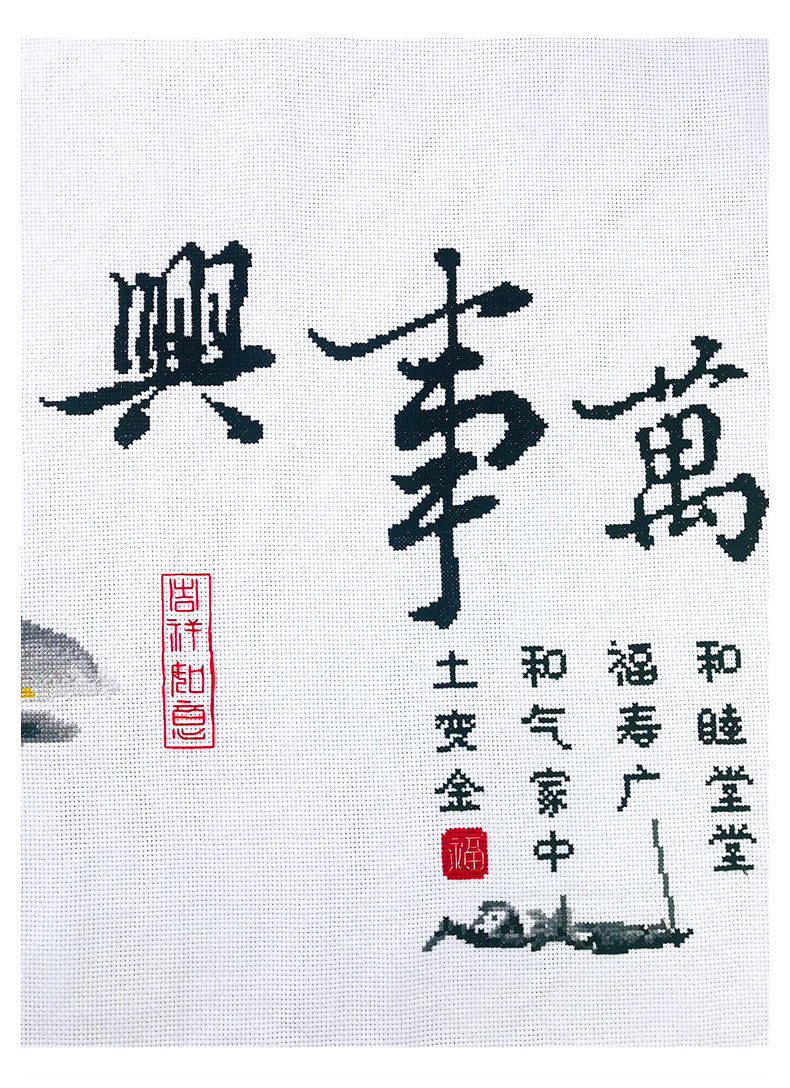 萬事興
和睦堂堂
福寿广
和气家中
土变金
福
吉祥如意